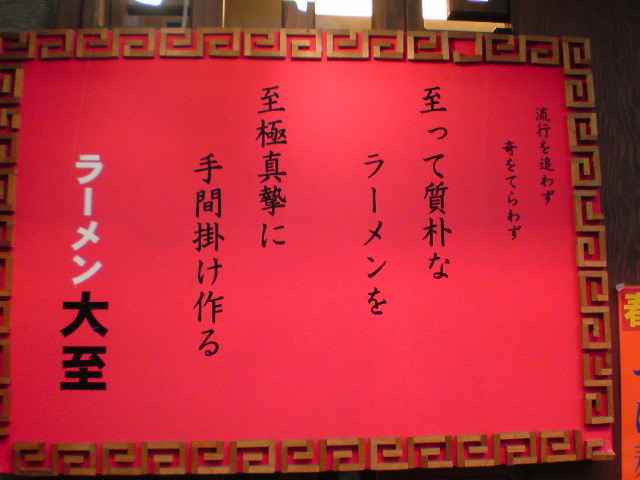 流行を追わず
奇をてらわず
至って質朴な
ラーメンを
至極真摯に
手間掛け作る
ラーメン大至
春